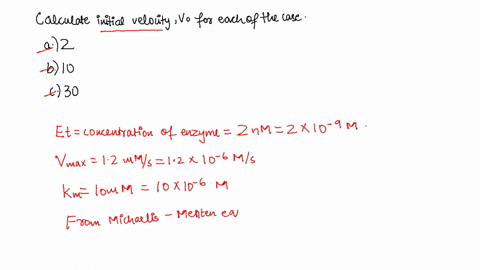 Calculate initial velocity, Vo for each of the case.
a.) 2
b.) 10
c.) 30
Et = concentration of enzyme = 2 nM = 2 × 10⁻⁹ M.
Vmax = 1.2 uM/s = 1.2 × 10⁻⁶ M/s
Km = 10 uM = 10 × 10⁻⁶ M
From Michaelis – Menten eq